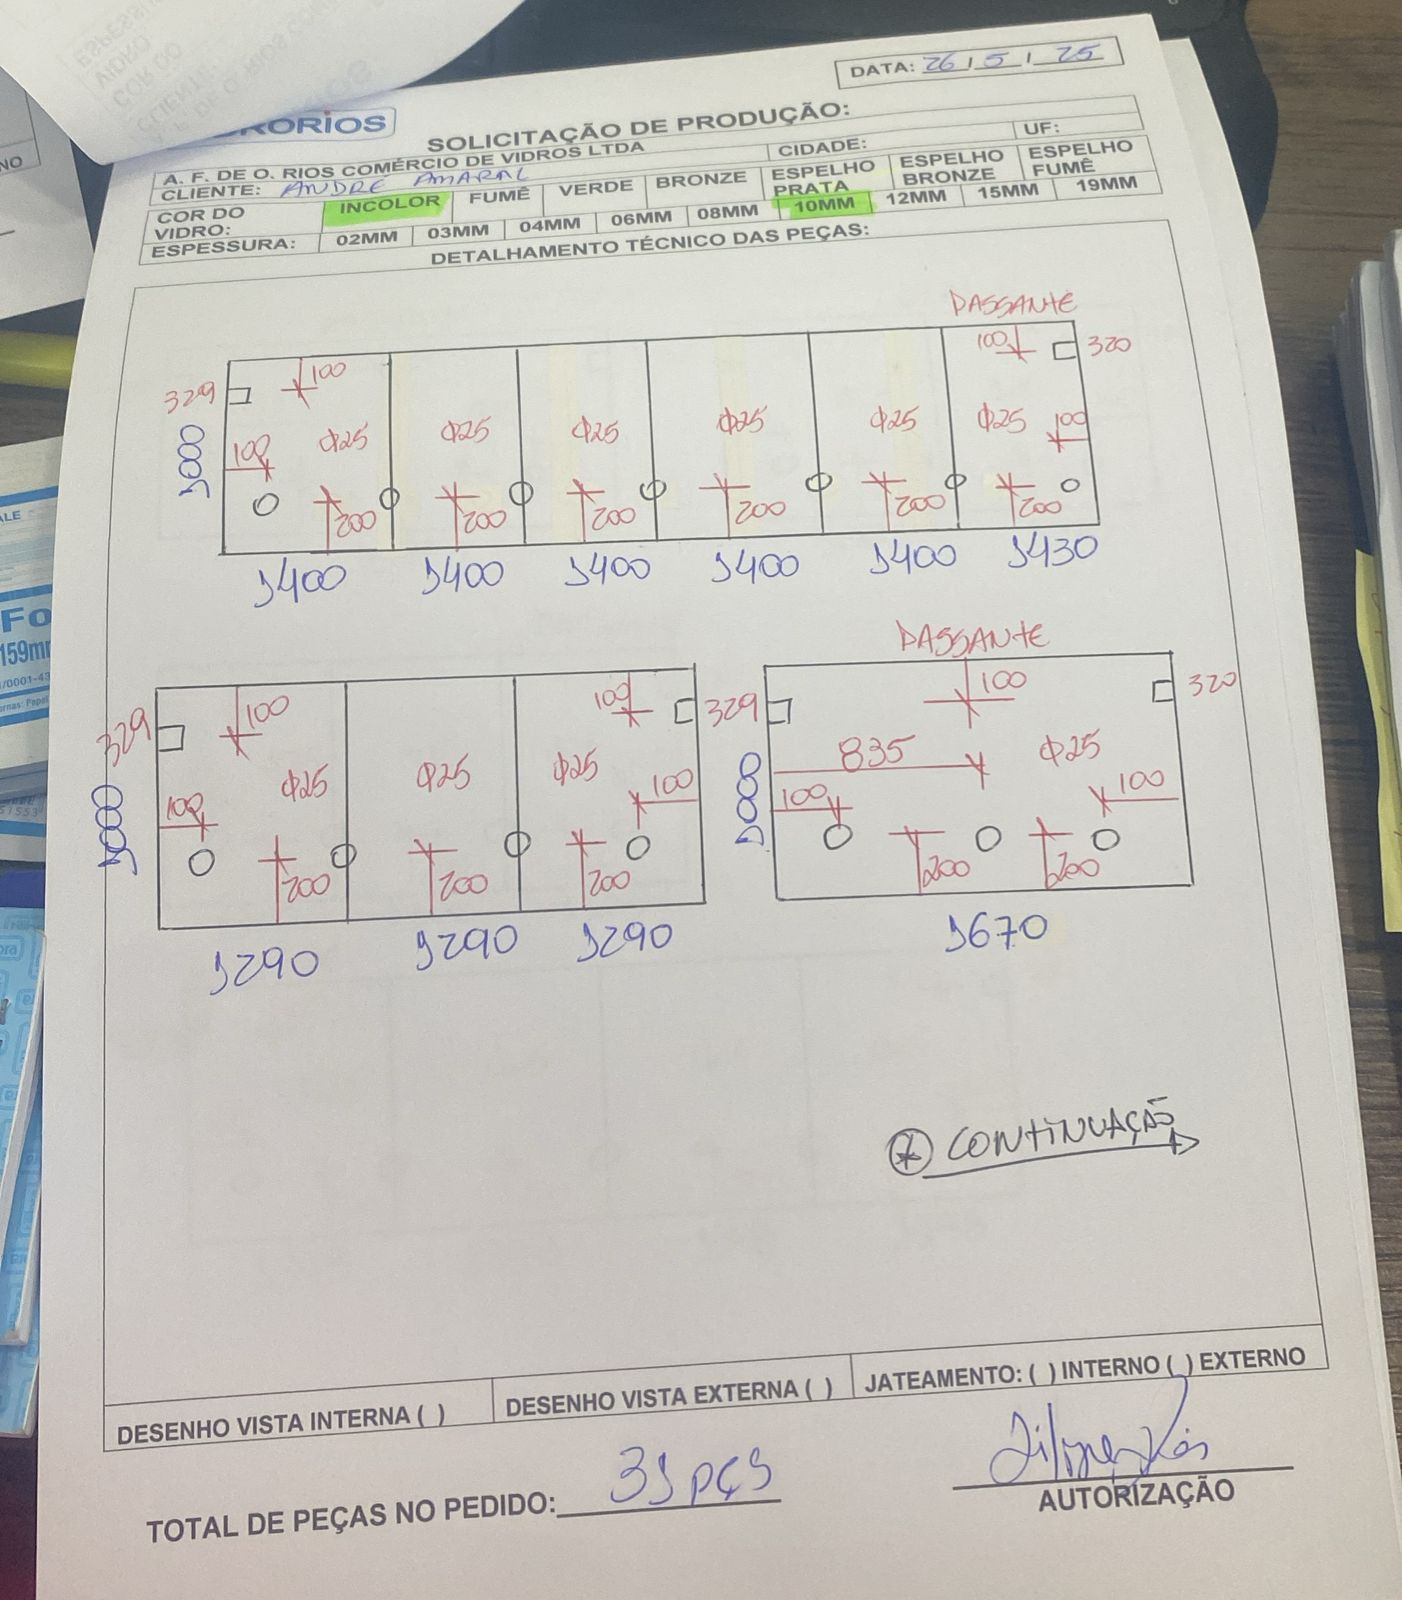 DATA: 26 / 5 / 25
RORIOS
SOLICITAÇÃO DE PRODUÇÃO:
A. F. DE O. RIOS COMÉRCIO DE VIDROS LTDA CIDADE: UF:
CLIENTE: ANDRÉ AMARAL
COR DO VIDRO: INCOLOR FUMÊ VERDE BRONZE ESPELHO PRATA ESPELHO BRONZE ESPELHO FUMÊ
ESPESSURA: 02MM 03MM 04MM 06MM 08MM 10MM 12MM 15MM 19MM
DETALHAMENTO TÉCNICO DAS PEÇAS:
PASSANTE
329 100 100 320
1000 100 Φ25 Φ25 Φ25 Φ25 Φ25 Φ25 100
200 200 200 200 200 200
1400 1400 1400 1400 1400 1430
PASSANTE
329 100 100 329 100 320
1000 100 Φ25 Φ25 Φ25 100 1000 835 Φ25
100 100
200 200 200 200 200
1290 1290 1290 1670
* CONTINUAÇÃO
DESENHO VISTA INTERNA ( ) DESENHO VISTA EXTERNA ( ) JATEAMENTO: ( ) INTERNO ( ) EXTERNO
TOTAL DE PEÇAS NO PEDIDO: 31 PÇS
AUTORIZAÇÃO